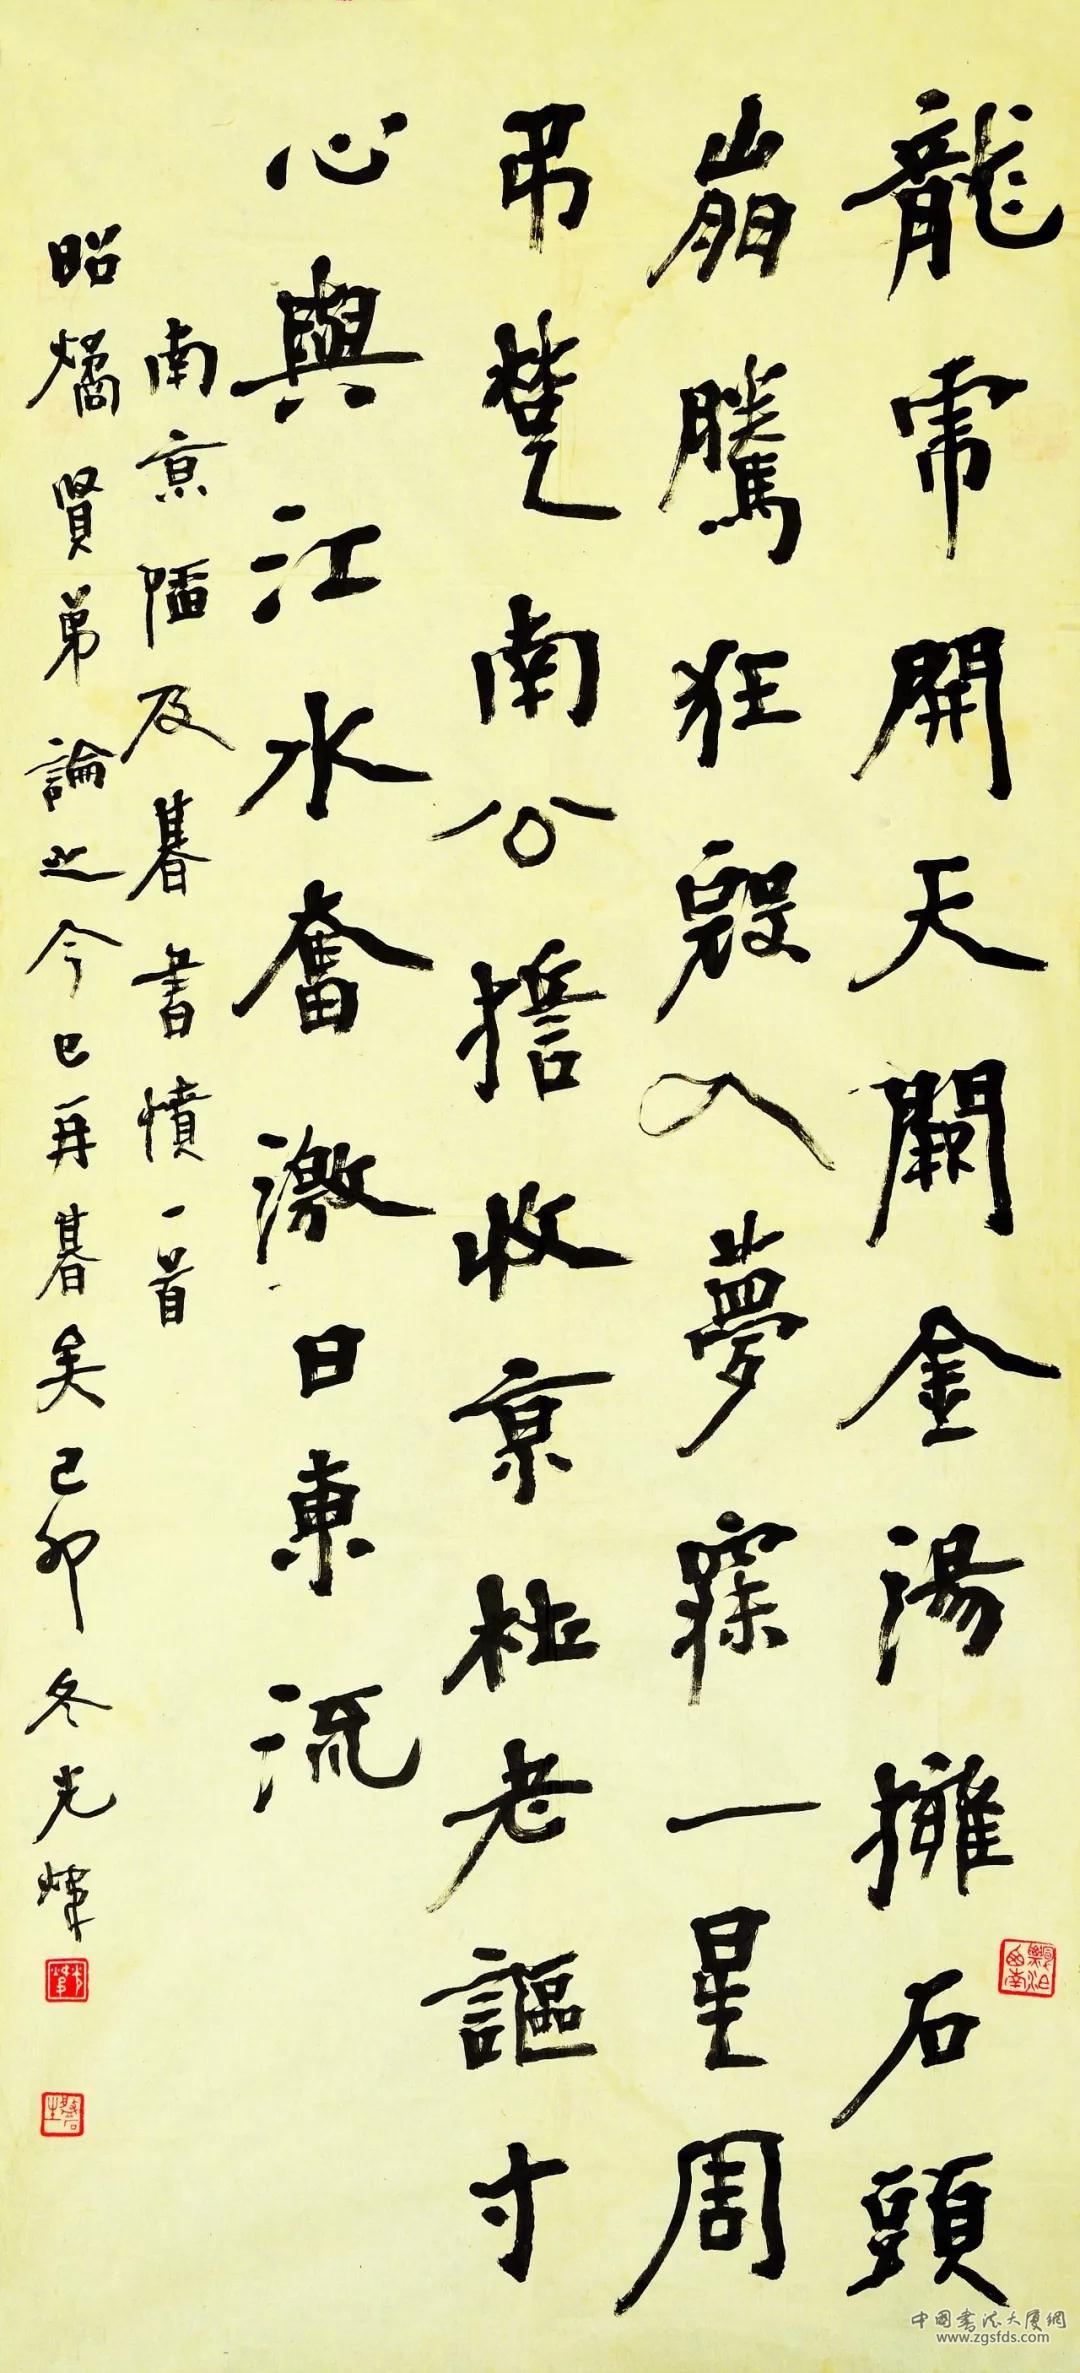 龍虎開天闕金湯擁石頭
崩騰狂寇入夢寐一星周
弔楚南公誓收京杜老謳寸
心與江水奮激日東流
南京陷及朞書憤一首
昭燏賢弟論之今已再朞矣己卯冬光煒
飄泊西南
中國書法大廈網
www.zgsfds.com